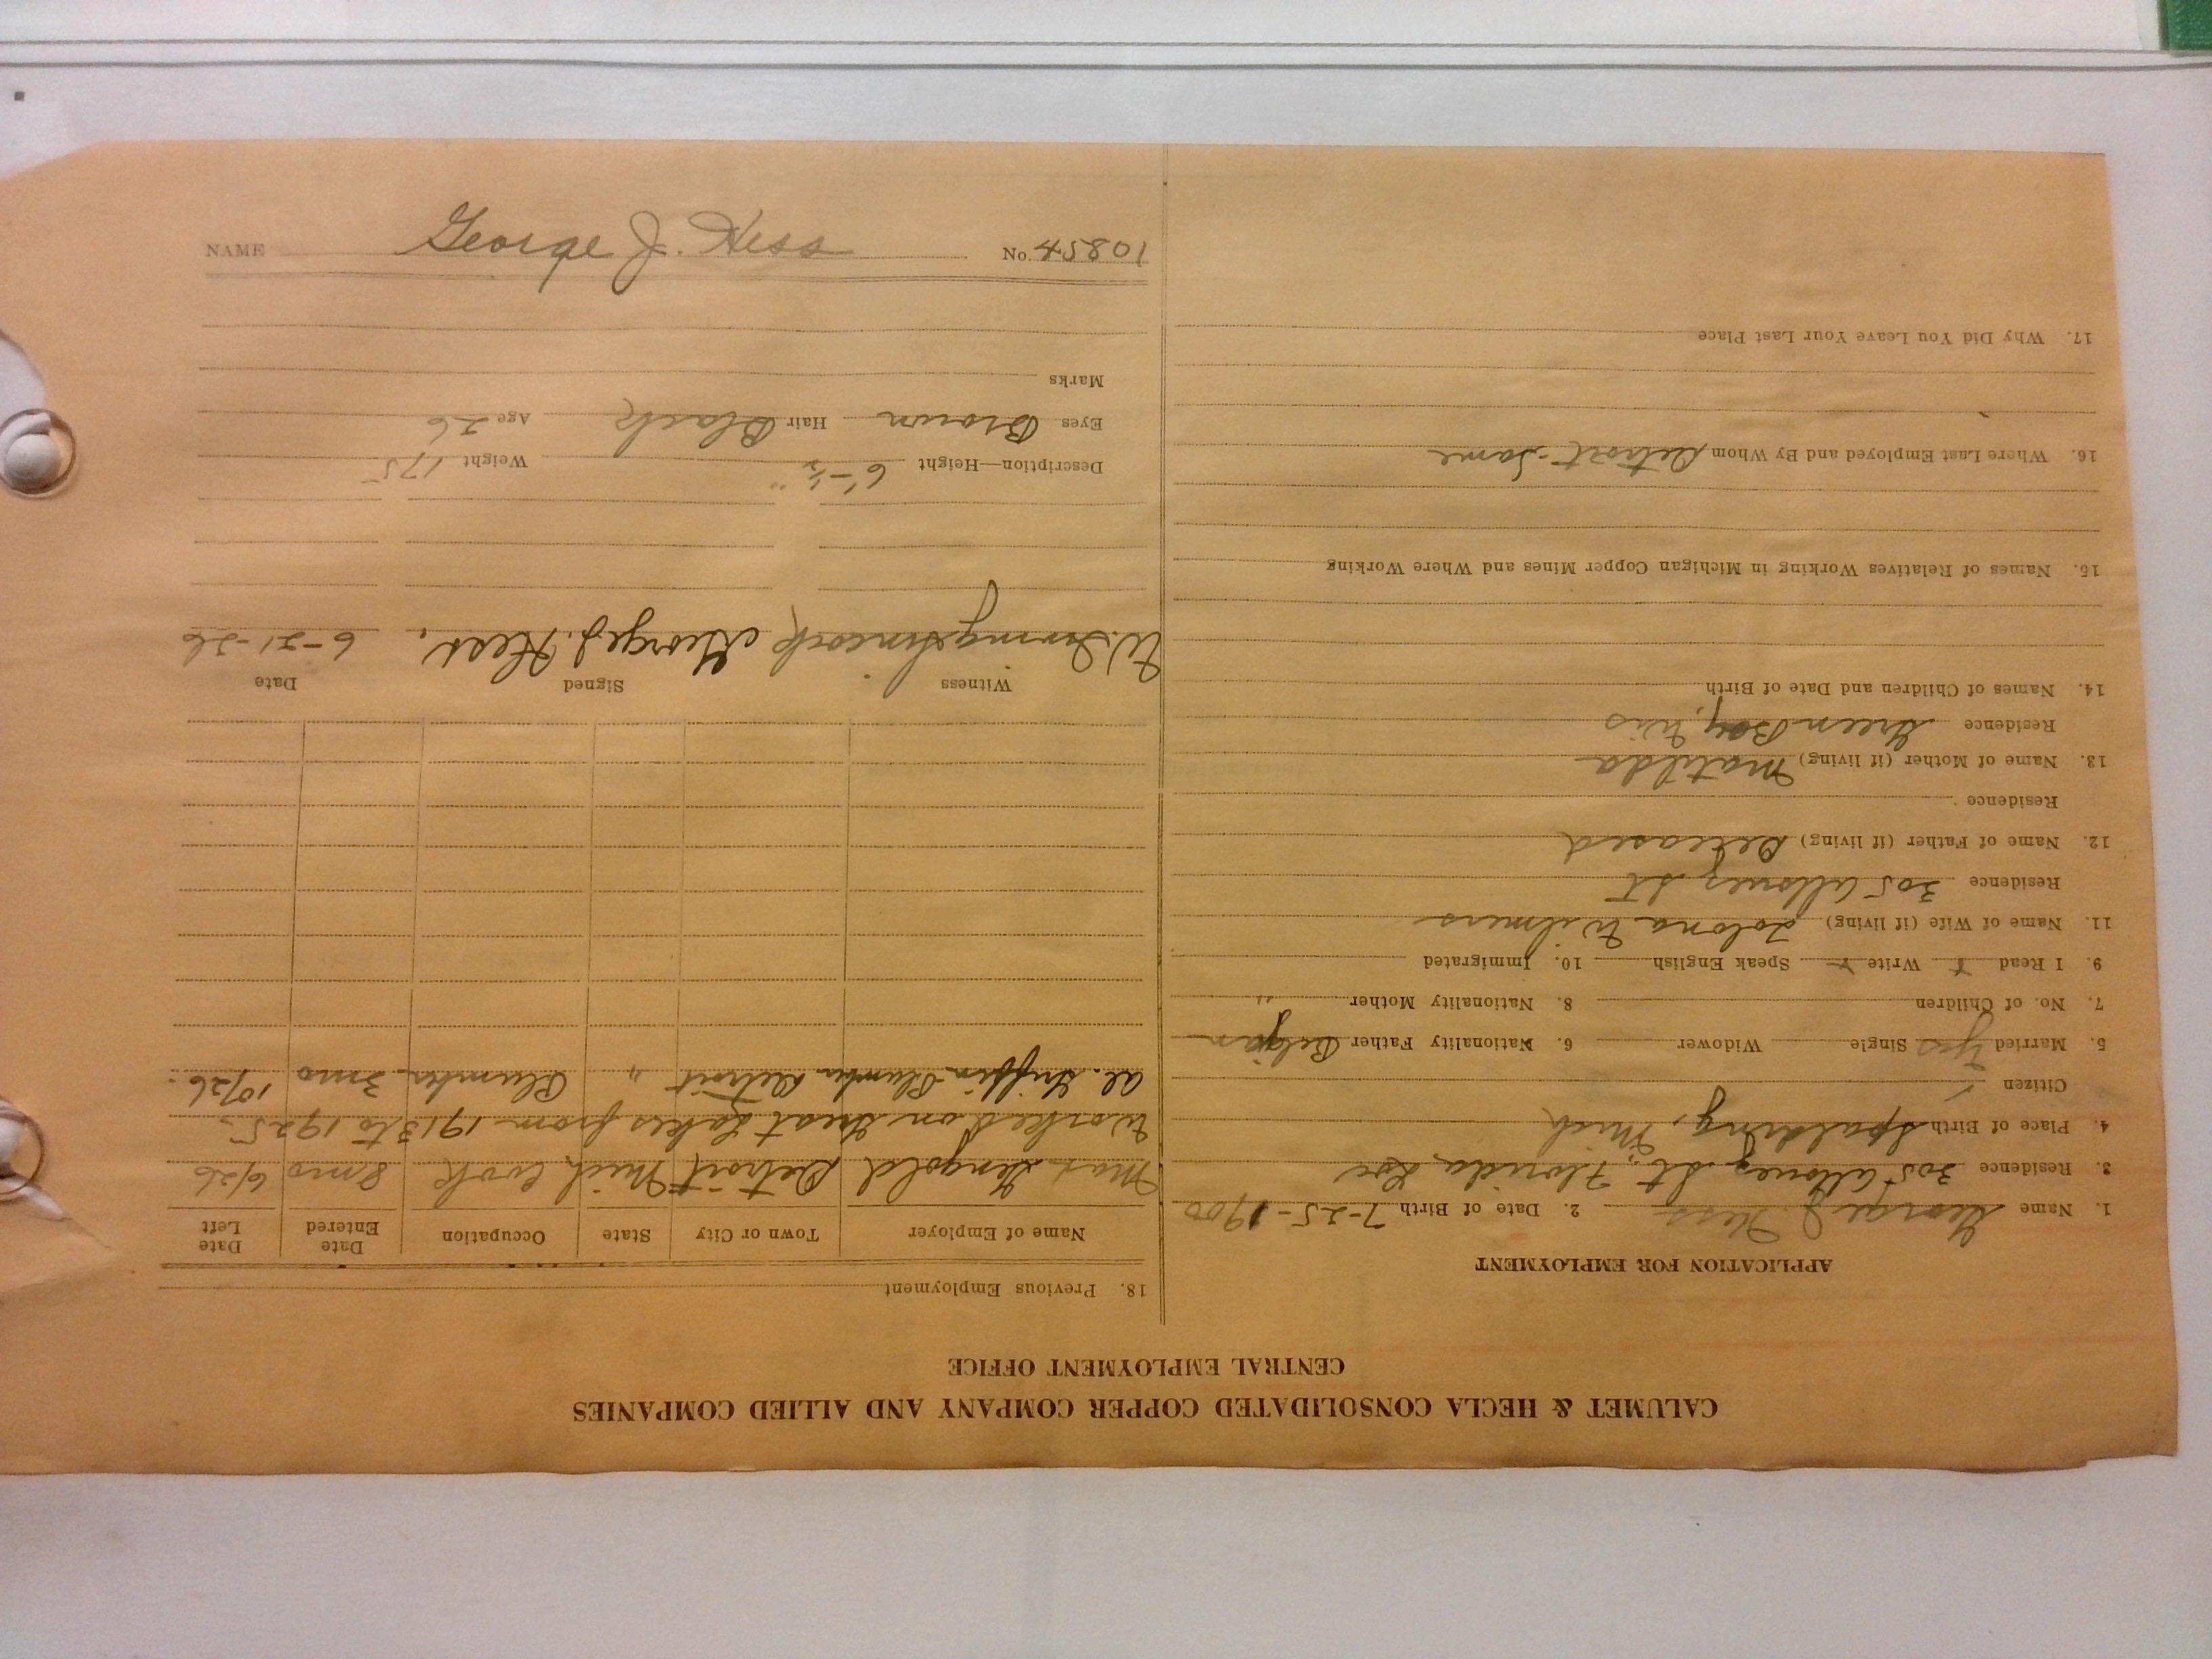 CALUMET & HECLA CONSOLIDATED COPPER COMPANY AND ALLIED COMPANIES
CENTRAL EMPLOYMENT OFFICE
APPLICATION FOR EMPLOYMENT
1. Name George J. Hess 2. Date of Birth 7-25-1900
3. Residence 305 Allouez St, Florida Loc
4. Place of Birth Spalding, Mich
Citizen
5. Married Yes Single Widower 6. Nationality Father Belgian
7. No. of Children 8. Nationality Mother "
9. I Read Y Write Y Speak English 10. Immigrated
11. Name of Wife (if living) Wilmers
Residence 305 Allouez St
12. Name of Father (if living) Deceased
Residence
13. Name of Mother (if living) Matilda
Residence Green Bay, Wis
14. Names of Children and Date of Birth
15. Names of Relatives Working in Michigan Copper Mines and Where Working
16. Where Last Employed and By Whom Detroit-Same
17. Why Did You Leave Your Last Place
18. Previous Employment
Name of Employer Town or City State Occupation Date Entered Date Left
Detroit Mich Cook 8 mo 6/26
Worked on Great Lakes from 1913 to 1925.
Al. Griffin Plumber Detroit " Plumber 3 mo 10/26.
Witness Signed Date
W. George J. Hess. 6-21-26
Description—Height 6'-½" Weight 175
Eyes Brown Hair Black Age 26
Marks
NAME George J. Hess No. 10854